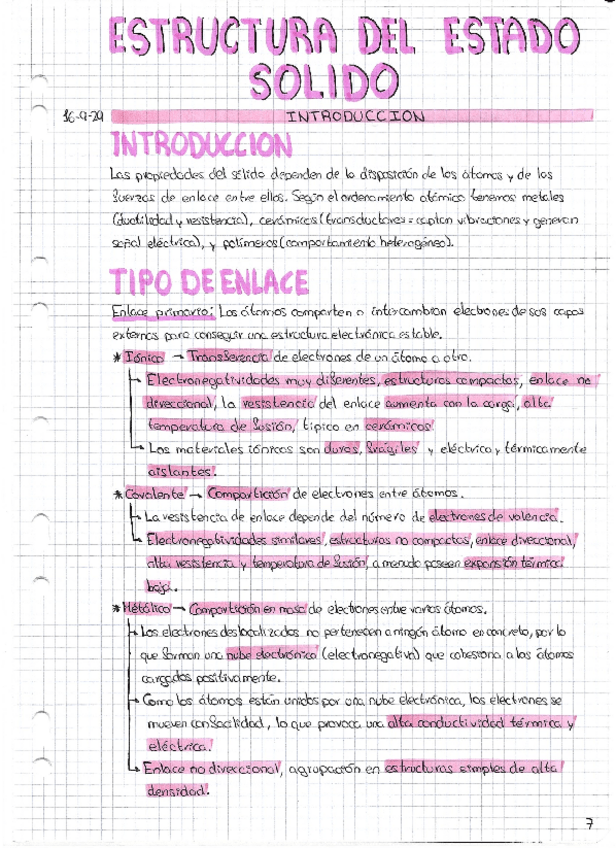 ESTRUCTURA DEL ESTADO
SOLIDO
16-9-24
INTRODUCCION
INTRODUCCION
Las propiedades del sólido dependen de la disposición de los átomos y de las
fuerzas de enlace entre ellos. Según el ordenamiento atómico tenemos metales
(ductilidad y resistencia), cerámicos (transductores = captan vibraciones y generan
señal eléctrica), y polímeros (comportamiento heterogéneo).
TIPO DE ENLACE
Enlace primario: Los átomos comparten o intercambian electrones de sus capas
externas para conseguir una estructura electrónica estable.
* Iónico → Transferencia de electrones de un átomo a otro.
Electronegatividades muy diferentes, estructuras compactas, enlace no
direccional, la resistencia del enlace aumenta con la carga, alta
temperatura de fusión, típico en cerámicos
Los materiales iónicos son duros, frágiles y eléctrica y térmicamente
aislantes.
* Covalente → Compartición de electrones entre átomos.
La resistencia de enlace depende del número de electrones de valencia.
Electronegatividades similares, estructuras no compactas, enlace direccional,
alta resistencia y temperatura de fusión, a menudo poseen expansión térmica
baja.
* Metálico → Compartición en masa de electrones entre varios átomos.
Los electrones deslocalizados no pertenecen a ningún átomo en concreto, por lo
que forman una nube electrónica (electronegativa) que cohesiona a los átomos
cargados positivamente.
Como los átomos están unidos por una nube electrónica, los electrones se
mueven con facilidad, lo que provoca una alta conductividad térmica y
eléctrica.
Enlace no direccional, agrupación en estructuras simples de alta
densidad.
7